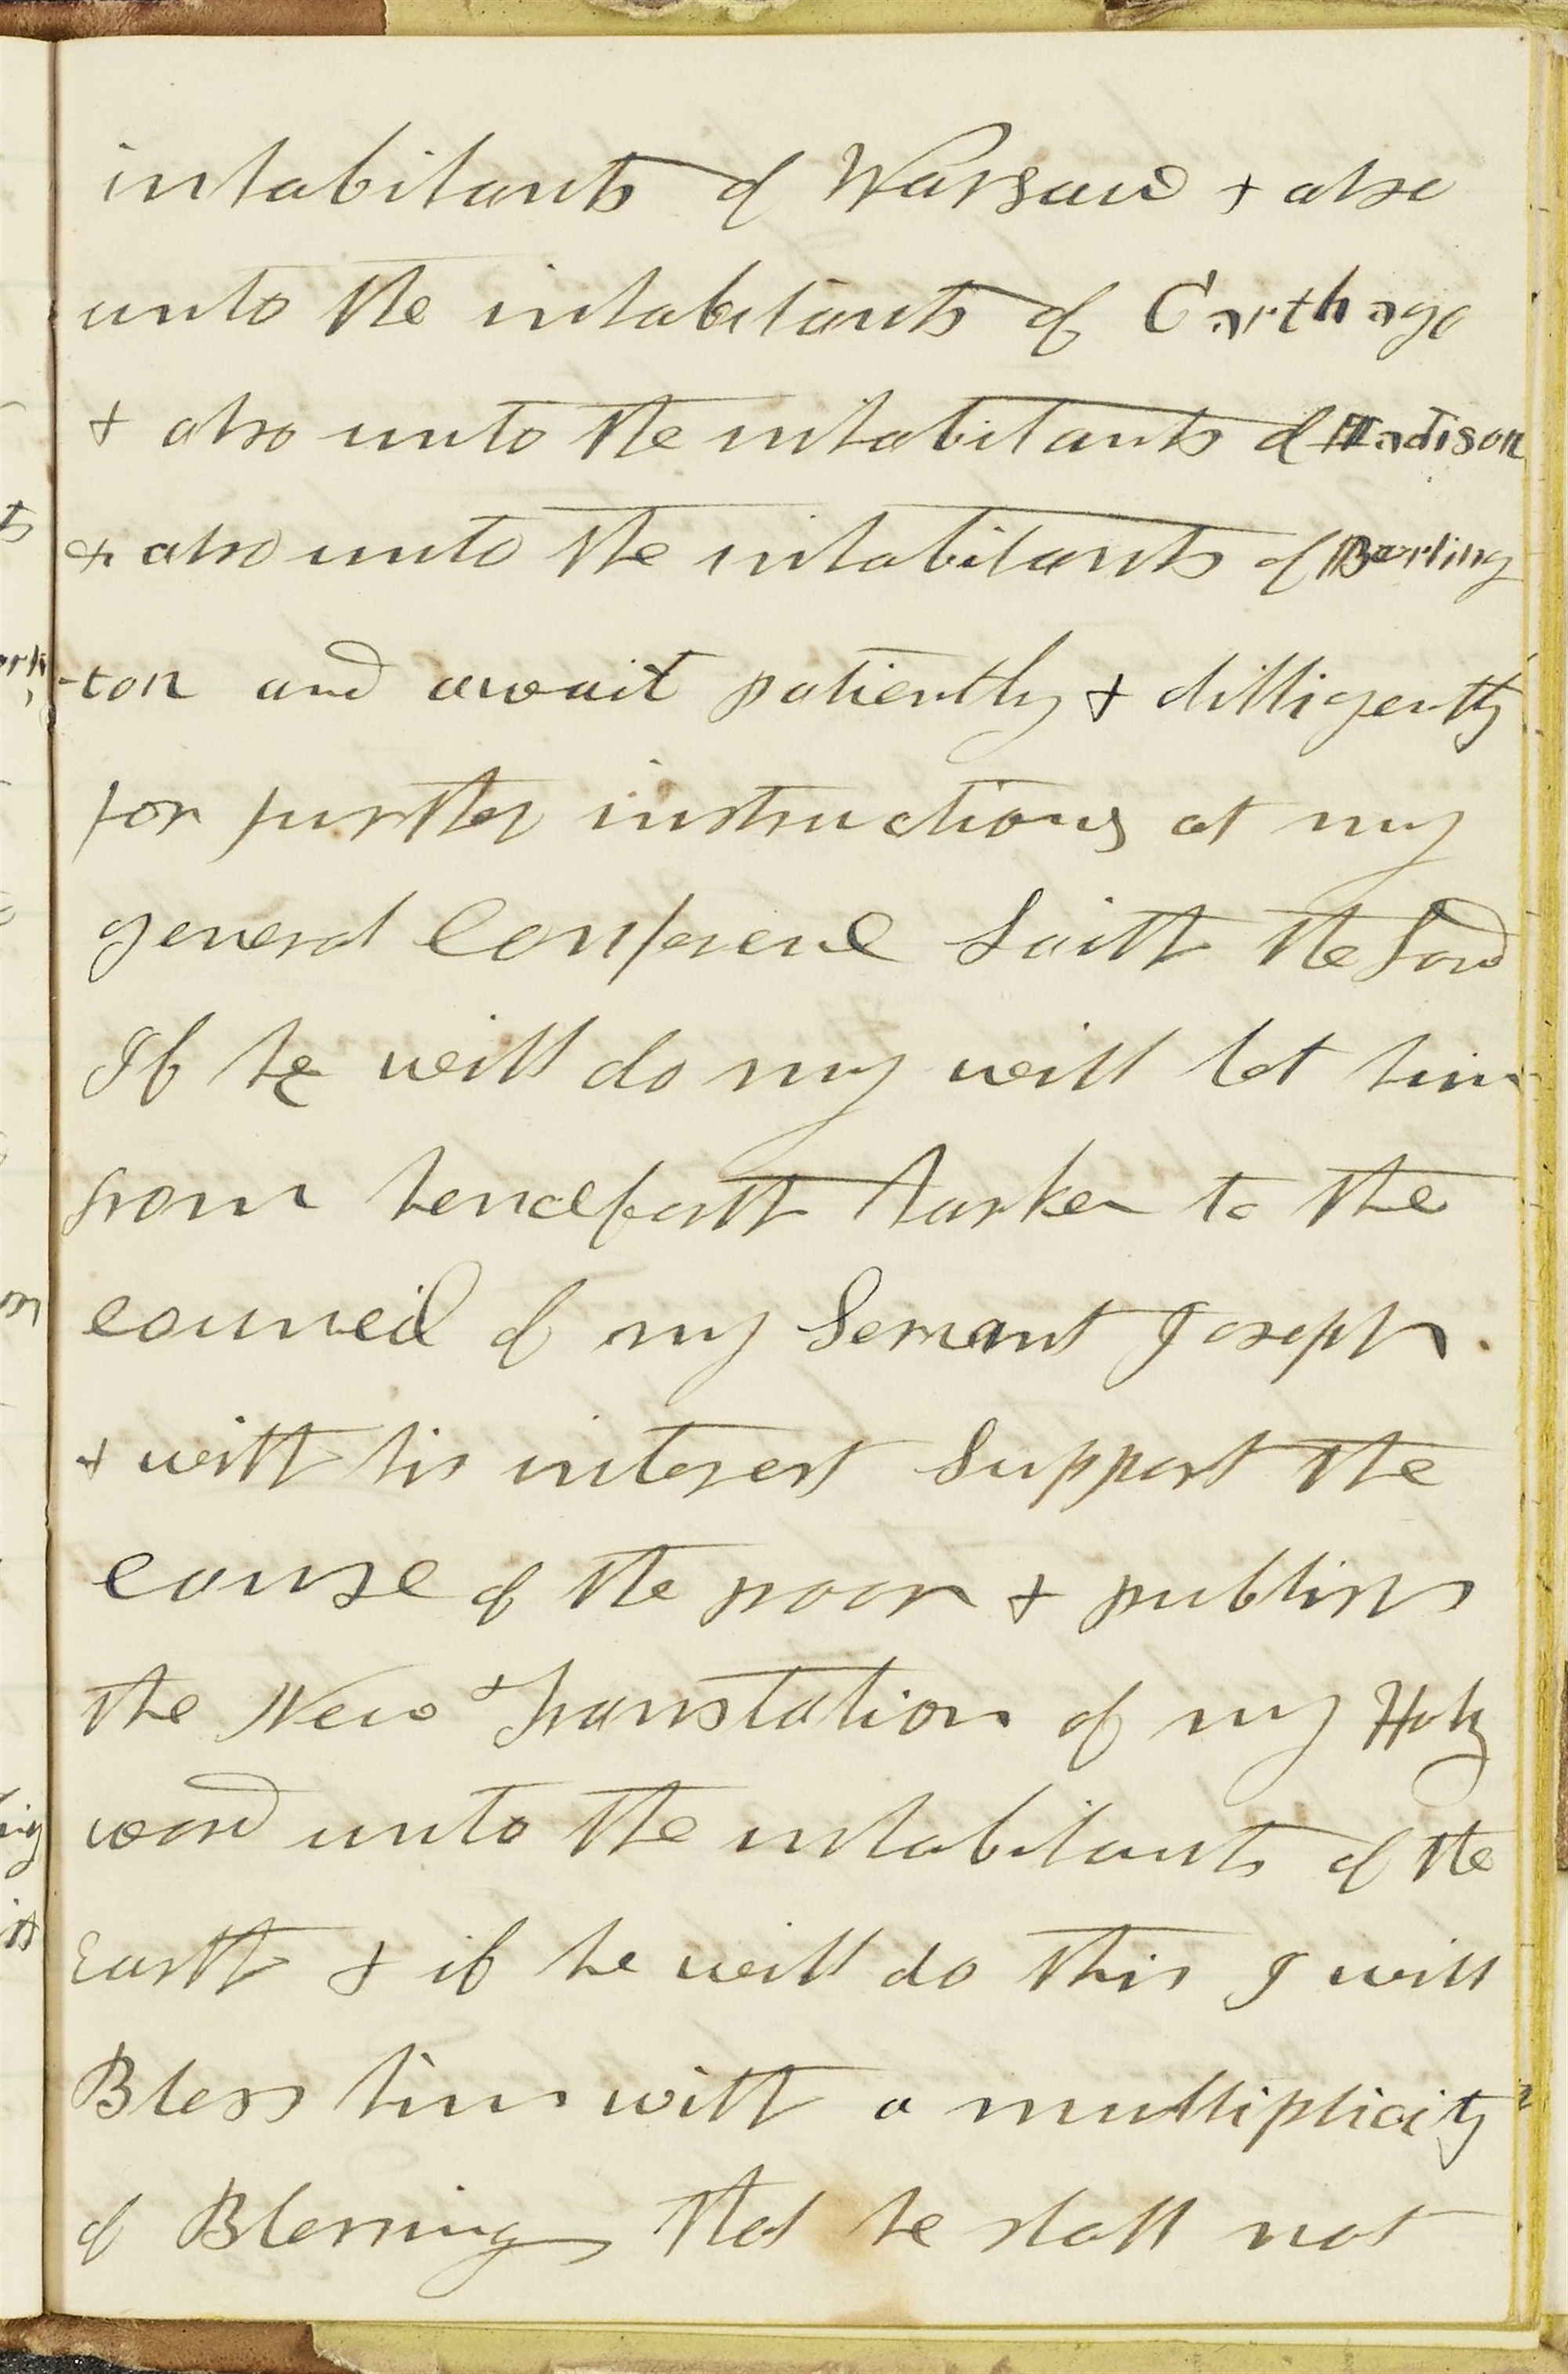 inhabitants of Warsaw & also
unto the inhabitants of Carthage
& also unto the inhabitants of Madison
& also unto the inhabitants of Burling
-ton and await patiently & dilligently
for further instructions at my
general Conference Saith the Lord
If he will do my will let him
from henceforth harken to the
council of my Servant Joseph.
& with his interest Support the
cause of the poor & publish
the New Translation of my Holy
word unto the inhabitants of the
Earth & if he will do this I will
Bless him with a multiplicity
of Blessings that he shall not